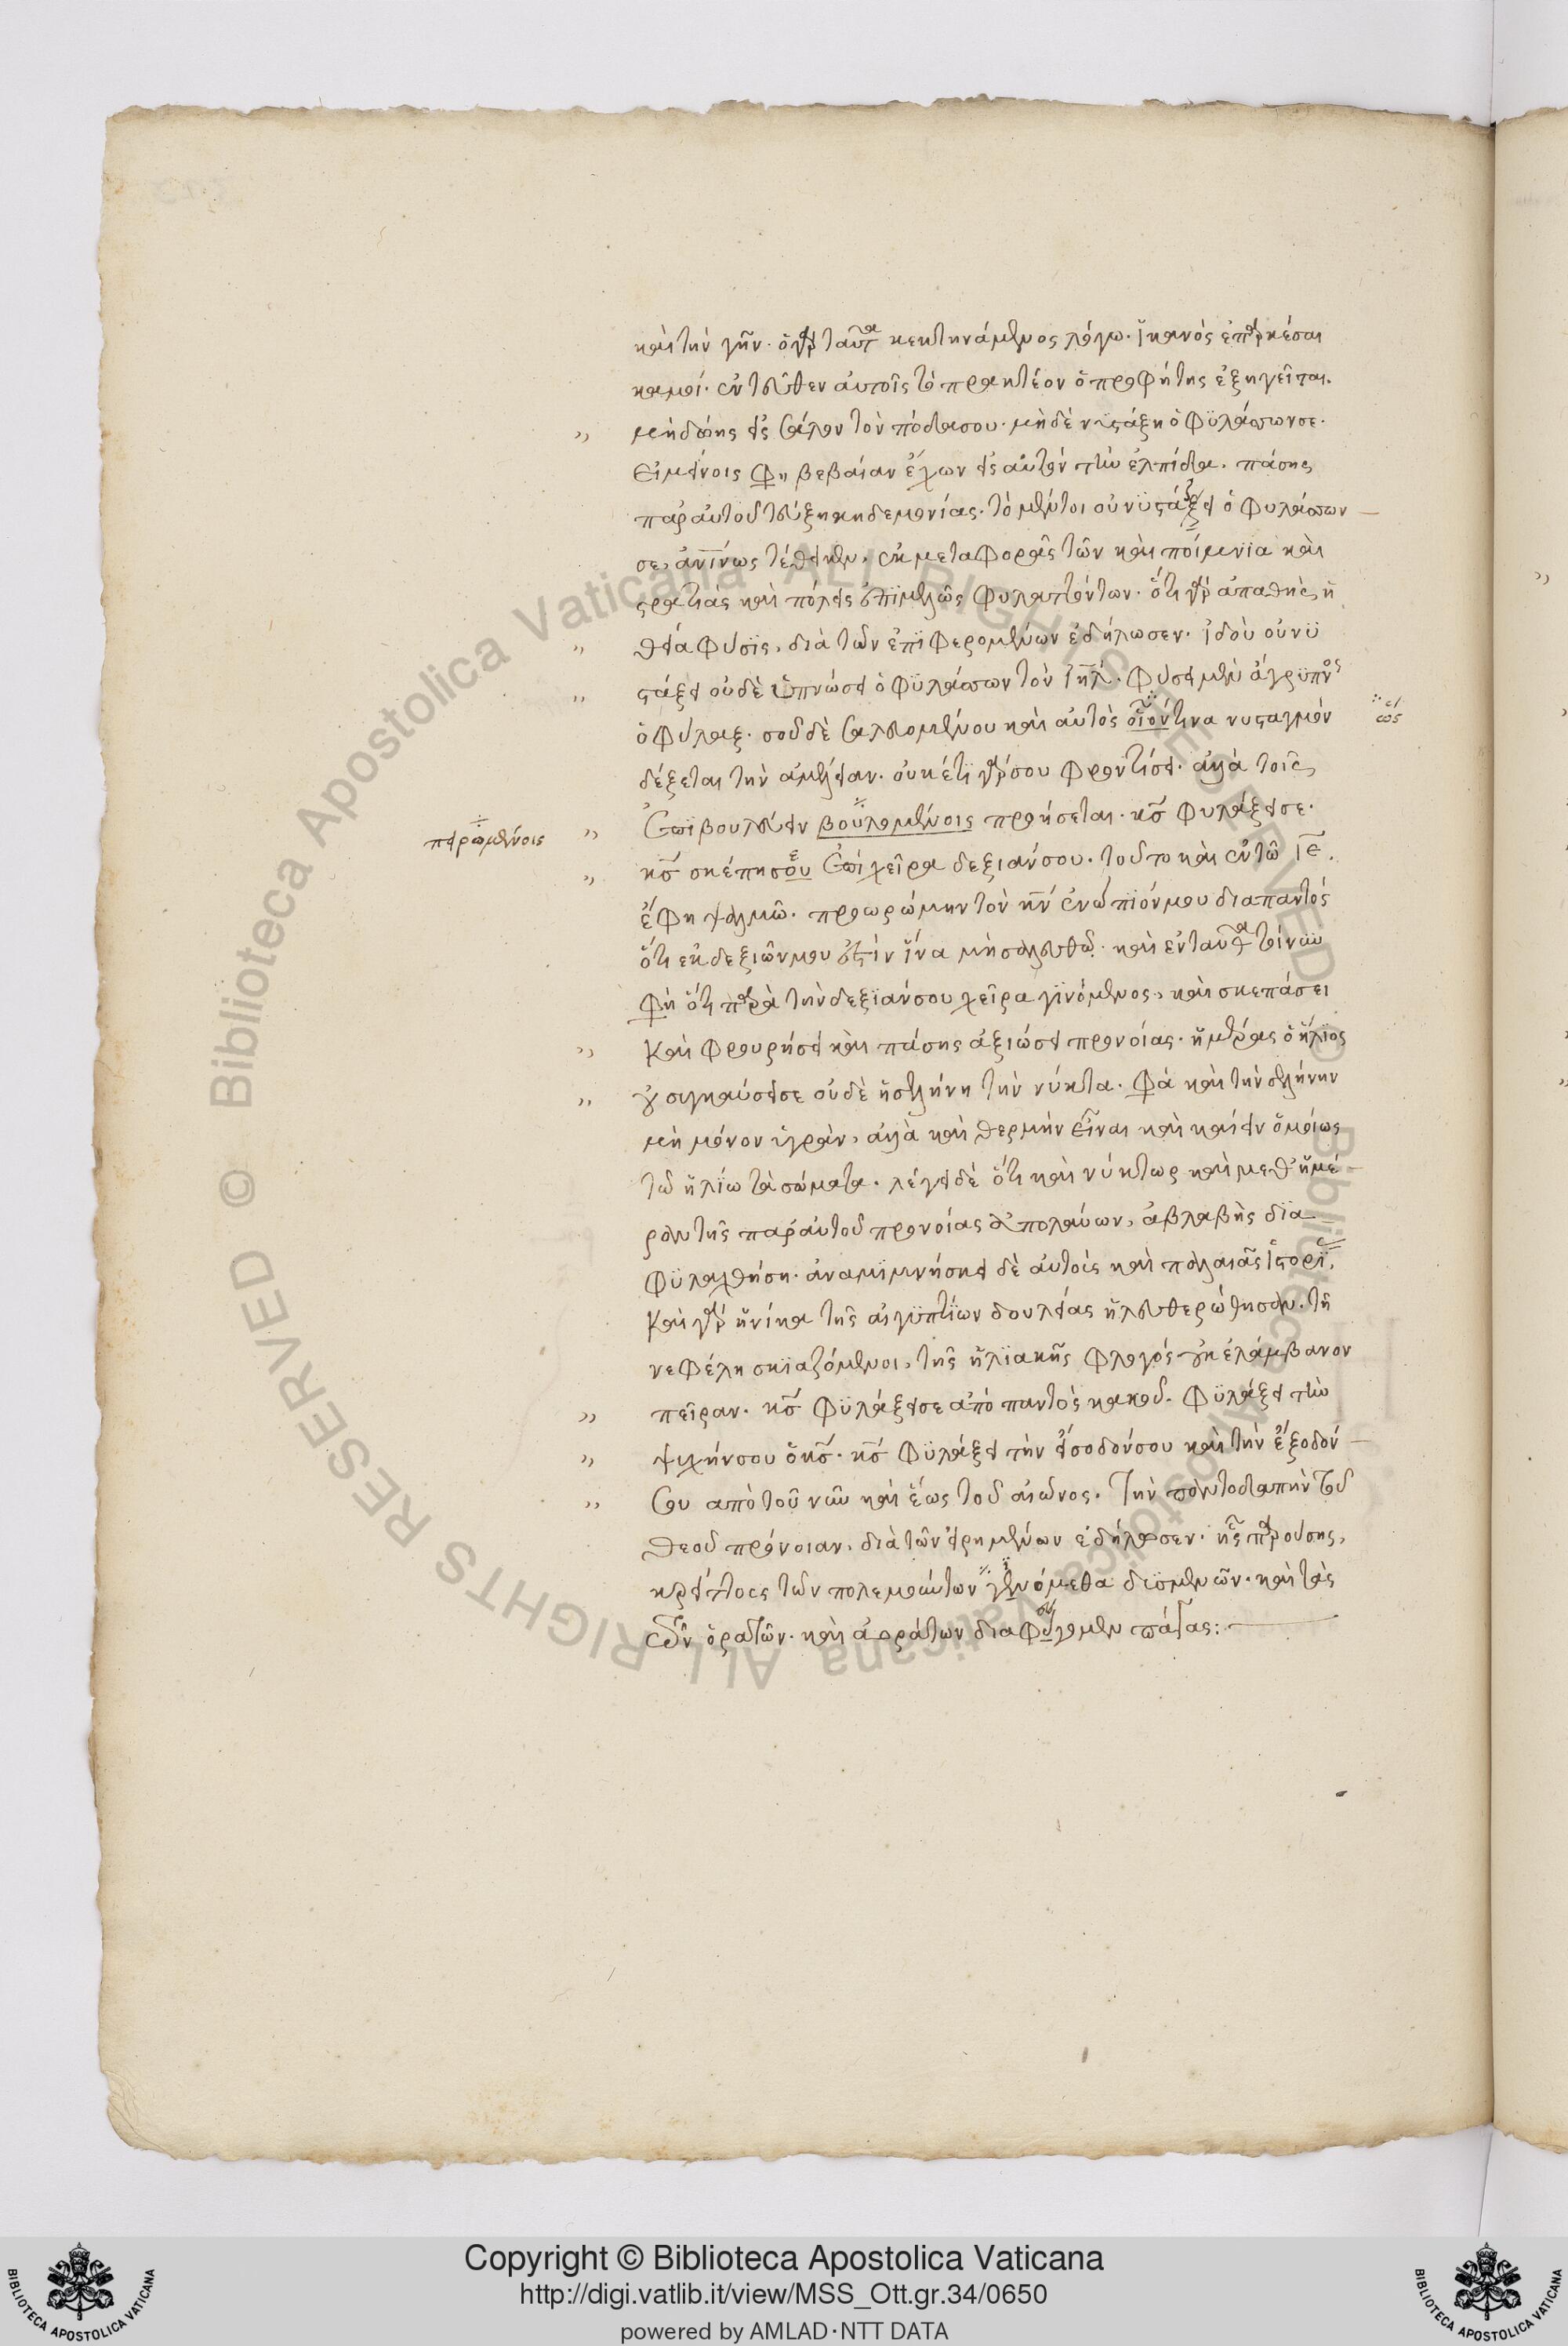 καὶ τὴν γῆν· ὁ γὰρ ταῦτα κεκτηνάμενος λόγω· ἱκανὸς ἐπαρκέσαι
καμοί· ἐντεῦθεν αὐτοῖς τὸ πρακτέον ὁ προφήτης ἐξηγεῖται.
„ μὴ δώης εἰς σάλον τὸν πόδα σου· μὴ δὲ νυστάξη ὁ φυλάσσων σε·
εἰ μένοις φη βεβαίαν ἔχων εἰς αὐτὸν τὴν ἐλπίδα. πάσης
παρ αὐτοῦ τεύξη κηδεμονίας· τὸ μέντοι οὐ νυστάξει ὁ φυλάσσων
σε, ἀνινως τέθεικεν, ἐκ μεταφορᾶς τῶν καὶ ποίμνια καὶ
στρατιὰς καὶ πόλεις ἐπιμελῶς φυλαττόντων· ὅτι γὰρ ἀπαθὴς ἡ
„ θεία φύσις, διὰ τῶν ἐπιφερομένων ἐδήλωσεν· ἰδοὺ οὐ νυ
„ στάξει οὐδὲ ὑπνώσει ὁ φυλάσσων τὸν ιηλ. φύσει μὲν ἄγρυπνος
ὁ φύλαξ· σοῦ δὲ σαλευομένου καὶ αὐτὸς οἱοντινα νυσταγμὸν
ὡσεί
δέξεται τὴν ἀμέλειαν· οὐκέτι γάρ σου φροντίσει· ἀλλὰ τοῖς
„ ἐπιβουλεύειν βουλομένοις προήσεται· κς φυλάξει σε·
πειρωμένοις
„ κς σκέπη σου ἐπὶ χεῖρα δεξιάν σου· τοῦτο καὶ ἐν τῶ ιε
ἔφη ψαλμῶ· προωρώμην τὸν κν ἐνώπιόν μου διαπαντὸς
ὅτι ἐκ δεξιῶν μου ἐστὶν ἵνα μὴ σαλευθῶ· καὶ ἐνταῦθα τοίνυν
φη ὅτι παρὰ τὴν δεξιάν σου χεῖρα γινόμενος, καὶ σκεπάσει
„ καὶ φρουρήσει καὶ πάσης ἀξιώσει προνοίας· ἡμέρας ὁ ἥλιος
„ οὐ συγκαύσει σε οὐδὲ ἡ σελήνη τὴν νύκτα. φα καὶ τὴν σελήνην
μὴ μόνον ὑγρὰν, ἀλλὰ καὶ θερμὴν εἶναι καὶ καίειν ὁμοίως
τῶ ἡλίω τὰ σώματα. λέγει δὲ ὅτι καὶ νύκτωρ καὶ μεθ ἡμέ
ραν τῆς παρ αὐτοῦ προνοίας ἀπολαύων, ἀβλαβὴς δια
φυλαχθήση· ἀναμιμνήσκει δὲ αὐτοὺς καὶ παλαιᾶς ἱστορί
καὶ γὰρ ἡνίκα τῆς αἰγυπτίων δουλείας ἠλευθερώθησαν· τῆ
νεφέλη σκιαζόμενοι, τῆς ἡλιακῆς φλογὸς οὐκ ἐλάμβανον
„ πεῖραν· κς φυλάξει σε ἀπὸ παντὸς κακοῦ. φυλάξει τὴν
„ ψυχήν σου ὁ κς· κς φυλάξει τὴν εἴσοδόν σου καὶ τὴν ἔξοδόν
„ σου ἀπὸ τοῦ νῦν καὶ ἕως τοῦ αἰῶνος. τὴν παντοδαπὴν τοῦ
θεοῦ πρόνοιαν, διὰ τῶν εἰρημένων ἐδήλωσεν· ἧς παρούσης,
κρείττους τῶν πολεμούντων γενόμεθα δυσμενῶν· καὶ τὰς
τῶν ὁρατῶν· καὶ ἀοράτων διαφύγομεν πάγας:
Copyright © Biblioteca Apostolica Vaticana
http://digi.vatlib.it/view/MSS_Ott.gr.34/0650
powered by AMLAD·NTT DATA
BIBLIOTECA APOSTOLICA VATICANA
BIBLIOTECA APOSTOLICA VATICANA
© Biblioteca Apostolica Vaticana ALL RIGHTS RESERVED © Biblioteca Apostolica Vaticana ALL RIGHTS RESERVED